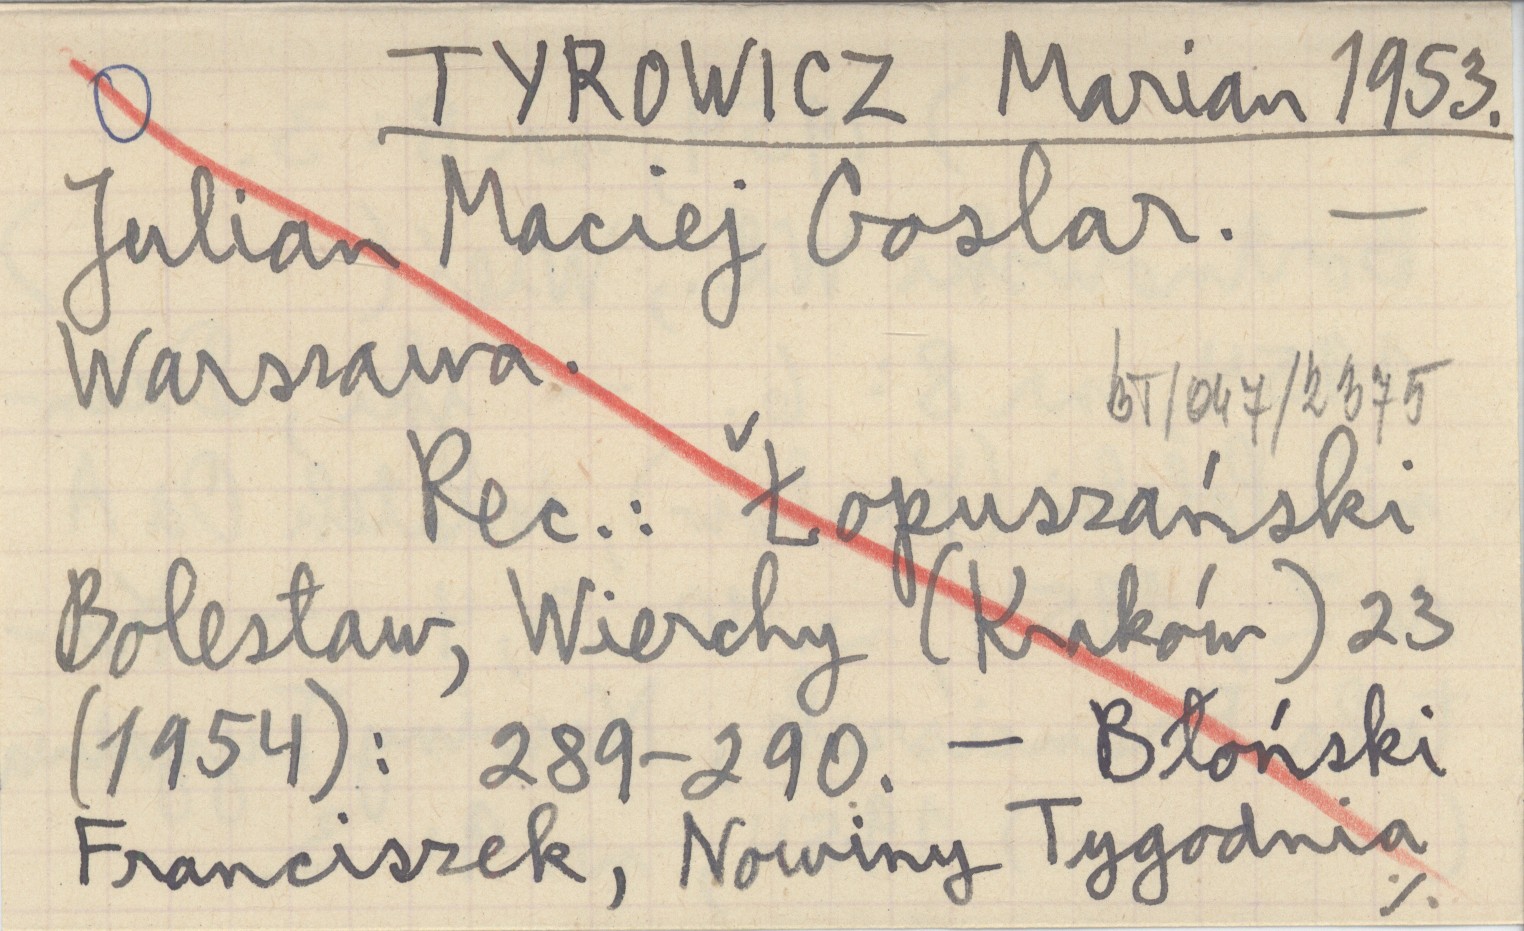 TYROWICZ Marian 1953.
Julian Maciej Goslar. —
Warszawa.
BT/047/2375
Rec.: Łopuszański
Bolesław, Wierchy (Kraków) 23
(1954): 289-290. — Błoński
Franciszek, Nowiny Tygodnia
./.